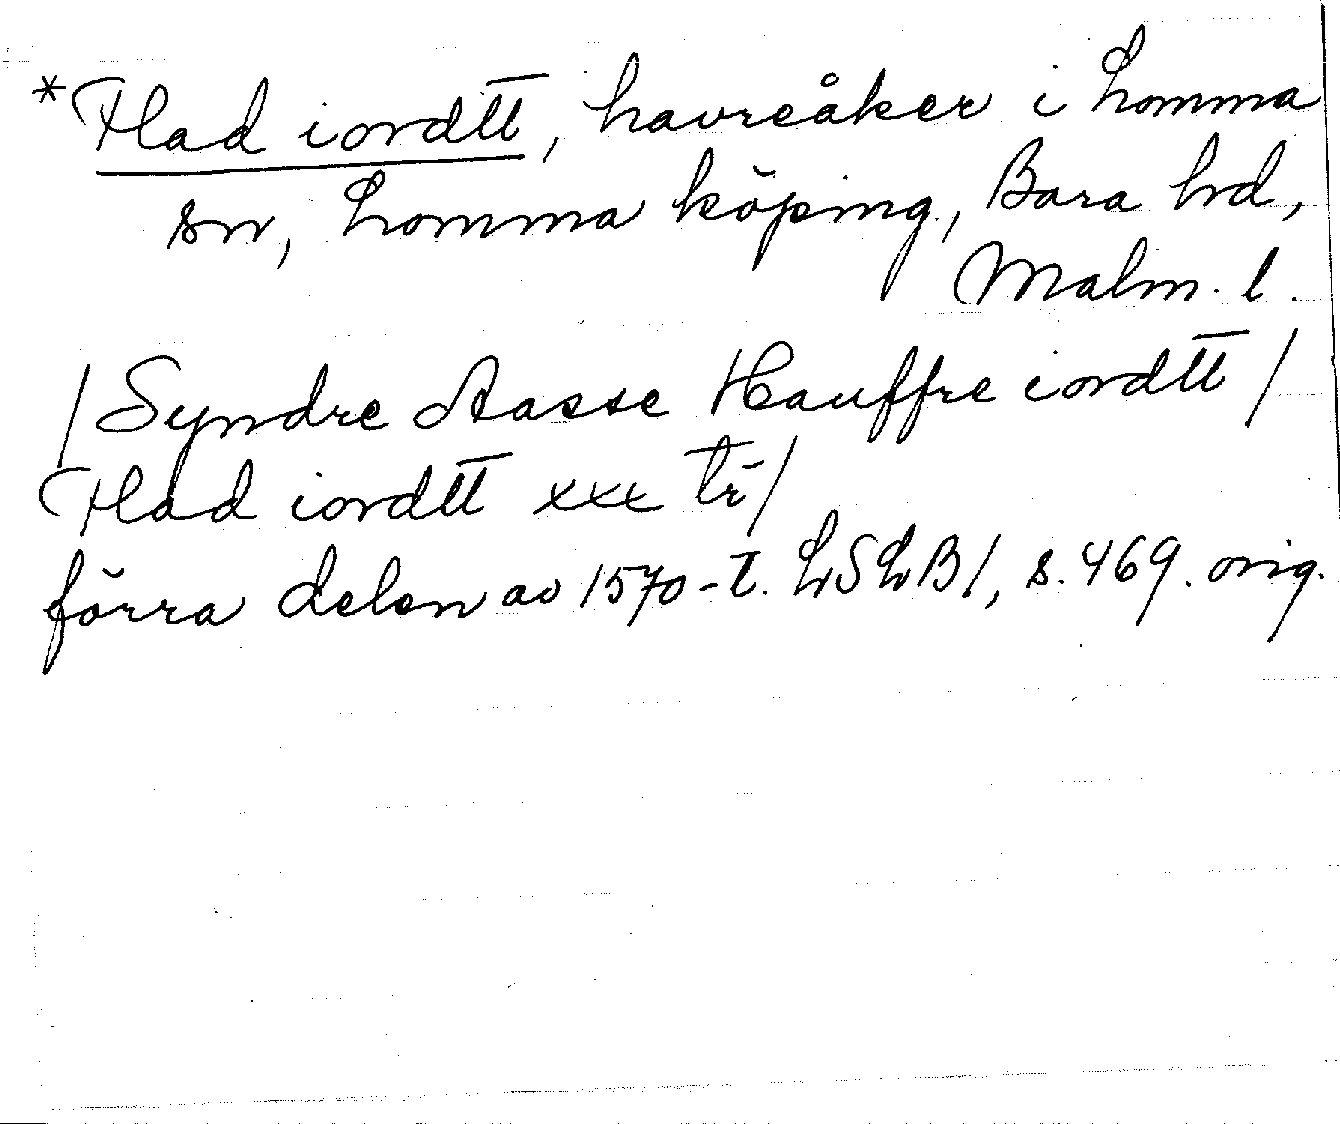 *Flad iordtt, havreåker i Lomma
sn, Lomma köping, Bara hd,
Malm. l.
/Syndre Aasse Hauffre iordtt/
Flad iordtt xxx tr/
förra delen av 1570-t. LSLB1, s. 469. orig.